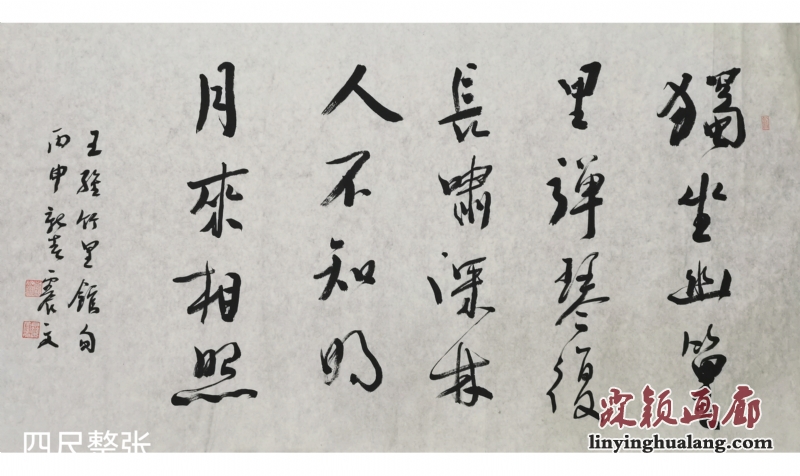 獨坐幽篁
里彈琴復
長嘯深林
人不知明
月來相照
王維竹里館句
丙申新春震文
四尺整张
霖颖画廊
linyinghualang.com